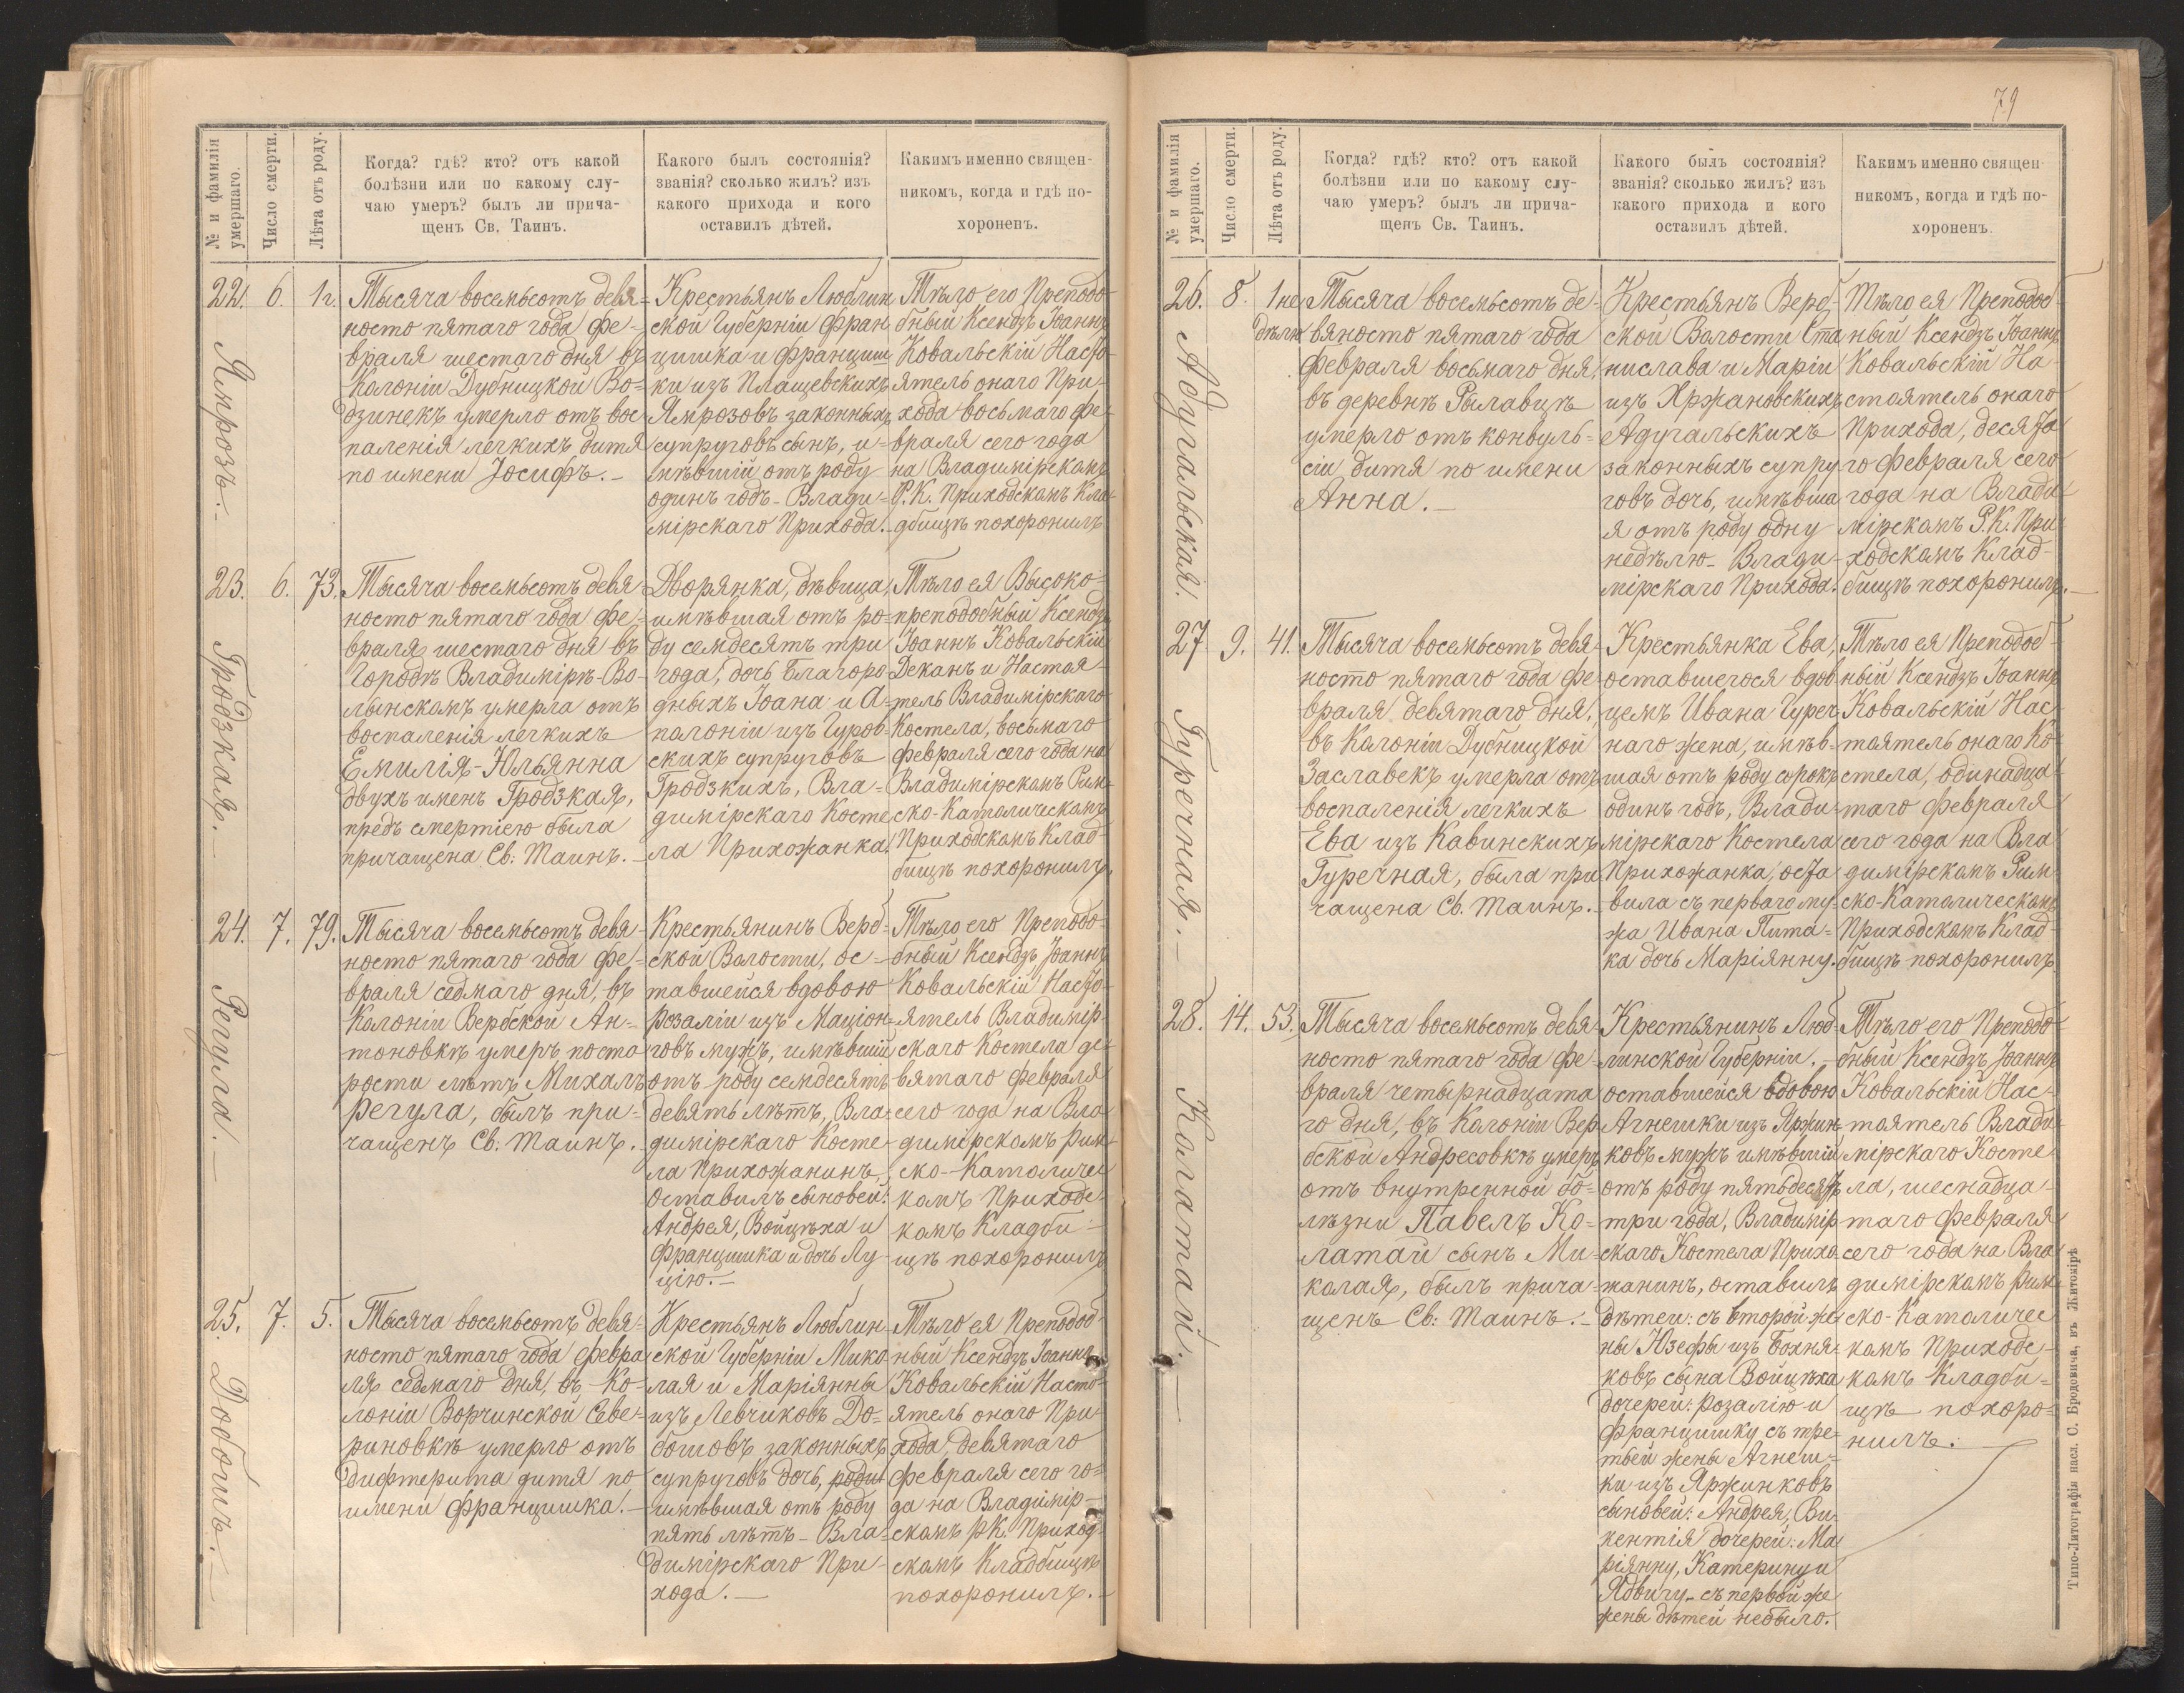 № и фамилія
умершаго.
Число смерти.
Лѣта отъ роду.
Когда? гдѣ? кто? отъ какой
болѣзни или по какому слу-
чаю умеръ? былъ ли прича-
щенъ Св. Таинъ.
Какого былъ состоянія?
званія? сколько жилъ? изъ
какого прихода и кого
оставилъ дѣтей.
Какимъ именно священ-
никомъ, когда и гдѣ по-
хороненъ.
22.
Ямрозъ.-
6.
1 г.
Тысяча восемьсотъ девя-
носто пятаго года фе-
враля шестаго дня въ
Колоніи Дубницкой Во-
дзинекъ умерло отъ вос
паленія легкихъ дитя
по имени Іосифъ.-
Крестьянъ Люблин
ской Губерніи Фран
цишка и Францишк
ки изъ Плащевскихъ
Ямрозовъ законныхъ
супруговъ сынъ, и-
мѣвшій отъ роду
одинъ годъ - Влади-
мірскаго Прихода.-
Тѣло его Преподо-
бный Ксендзъ Іоаннъ
Ковальскій Насто-
ятель онаго При-
хода восьмаго фе-
враля сего года
на Владимірскомъ
Р. К. Приходскомъ Кла-
дбищѣ похоронилъ
23.
Гродзкая.-
6.
73.
Тысяча восемьсотъ девя-
носто пятаго года фе-
враля шестаго дня въ
Городѣ Владимірѣ-Во-
лынскомъ умерла отъ
воспаленія легкихъ
Емилія-Юльянна
двухъ именъ Гродзкая,
предъ смертію была
причащена Св: Таинъ.-
Дворянка, дѣвица,
имѣвшая отъ ро-
ду семдесятъ три
года, дочь Благоро-
дныхъ Іоана и А-
полоніи изъ Гуров-
скихъ супруговъ
Гродзкихъ, Вла-
димірскаго Косте
ла Прихожанка.
Тѣло ея Высоко-
преподобный Ксендзъ
Іоаннъ Ковальскій
Деканъ и Настоя-
тель Владимірскаго
Костела, восьмаго
февраля сего года на
Владимірскомъ Рим-
ско-Католическомъ
Приходскомъ Клад-
бищѣ похоронилъ.
24.
Регула.-
7.
79.
Тысяча восемьсотъ девя-
носто пятаго года фе-
враля седмаго дня, въ
Колоніи Вербской Ан-
тоновкѣ умеръ по ста
рости лѣтъ Михалъ
Регула, былъ при-
чащенъ Св: Таинъ.
Крестьянинъ Верб-
ской Волости, ос-
тавшейся вдовою
Розаліи изъ Мацiон-
говъ мужъ, имѣвшій
отъ роду семдесятъ
девять лѣтъ, Вла-
димірскаго Косте-
ла Прихожанинъ,
оставилъ сыновей:
Андрея, Войцѣха и
Францишка и дочь Лу-
цію.-
Тѣло его Преподо-
бный Ксендзъ Іоаннъ
Ковальскій Насто-
ятель Владимір-
скаго Костела де-
вятаго февраля
сего года на Вла-
димірскомъ Рим-
ско-Католичес
комъ Приходс-
комъ Кладби-
щѣ похоронилъ
25.
Доботъ.-
7.
5.
Тысяча восемьсотъ девя-
носто пятаго года февра
ля седмаго дня, въ Ко-
лоніи Ворчинской Севе-
риновкѣ умерло отъ
дифтерита дитя по
имени Францишка.-
Крестьянъ Люблин-
ской Губерніи Мико
лая и Маріянны
изъ Левчиковъ До-
ботовъ законныхъ
супруговъ дочь, роди
имѣвшая отъ роду
пять лѣтъ - Вла-
димірскаго При-
хода.-
Тѣло ея Преподоб-
ный Ксендзъ Іоаннъ
Ковальскій Насто-
ятель онаго При-
хода, девятаго
февраля сего го-
да на Владимір-
скомъ Р.К. Приход-
скомъ Кладбищѣ
похоронилъ.-
79
№ и фамилія
умершаго.
Число смерти.
Лѣта отъ роду.
Когда? гдѣ? кто? отъ какой
болѣзни или по какому слу-
чаю умеръ? былъ ли прича-
щенъ Св. Таинъ.
Какого былъ состоянія?
званія? сколько жилъ? изъ
какого прихода и кого
оставилъ дѣтей.
Какимъ именно священ-
никомъ, когда и гдѣ по-
хороненъ.
26.
Адугальская.
8.
1 не
дѣля
Тысяча восемьсотъ де-
вяносто пятаго года
февраля восьмаго дня,
въ деревнѣ Рылавицѣ
умерло отъ конвуль-
сіи дитя по имени
Анна.-
Крестьянъ Верб-
ской Волости Ста
нислава и Маріи
изъ Хржановскихъ
Адугальскихъ
законныхъ супру
говъ дочь, имѣвша
я отъ роду одну
недѣлю - Влади-
мірскаго Прихода.
Тѣло ея Преподоб-
ный Ксендзъ Іоаннъ
Ковальскій На-
стоятель онаго
Прихода, десята
го февраля сего
года на Влади-
мірскомъ Р.К. При-
ходскомъ Клад-
бищѣ похоронилъ.-
27
Гуречная.-
9.
41.
Тысяча восемьсотъ девя-
носто пятаго года фе-
враля девятаго дня,
въ Колоніи Дубницкой
Заславекъ умерла отъ
воспаленія легкихъ
Ева изъ Кавинскихъ
Гуречная, была при
чащена Св. Таинъ.-
Крестьянка Ева,
оставшегося вдов-
цемъ Ивана Гуреч-
наго жена, имѣв-
шая отъ роду сорокъ
одинъ годъ, Влади-
мірскаго Костела
Прихожанка, оста
вила съ перваго му-
жа Ивана Пита-
ка дочь Маріянну.
Тѣло ея Преподоб-
ный Ксендзъ Іоаннъ
Ковальскій Нас-
тоятель онаго Ко-
стела, одинадца-
таго февраля
сего года на Вла-
димірскомъ Рим-
ско-Католическомъ
Приходскомъ Клад-
бищѣ похоронилъ
28.
Колатай.-
14.
53.
Тысяча восемьсотъ девя-
носто пятаго года фе-
враля четырнадцата
го дня, въ Колоніи Вер
бской Андресовкѣ умеръ
отъ внутренной бо-
лѣзни Павелъ Ко-
латай сынъ Ми-
колая, былъ прича-
щенъ Св: Таинъ.-
Крестьянинъ Люб-
линской Губерніи.-
оставшейся вдовою
Агнешки изъ Яржин-
ковъ мужъ имѣвшій
отъ роду пятьдесятъ
три года, Владимір-
скаго Костела Прихо-
жанинъ, оставилъ
дѣтей: съ второй же
ны Юзефы изъ Бохня-
ковъ сына Войцѣха
дочерей: Розалію и
Францишку съ тре-
тьей жены Агнеш-
ки изъ Яржинковъ
сыновей: Андрея, Ви-
кентія дочерей: Ма
ріянну, Катерину и
Ядвигу - съ первой же
жены дѣтей небыло.
Тѣло его Преподо-
бный Ксендзъ Іоаннъ
Ковальскій Нас-
тоятель Влади-
мірскаго Косте
ла, шеснадца-
таго февраля
сего года на Вла-
димірскомъ Рим-
ско-Католичес
комъ Приходс-
комъ Кладби-
щѣ похоро-
нилъ.
Типо-Литографія насл. С. Бродовича, въ Житомірѣ